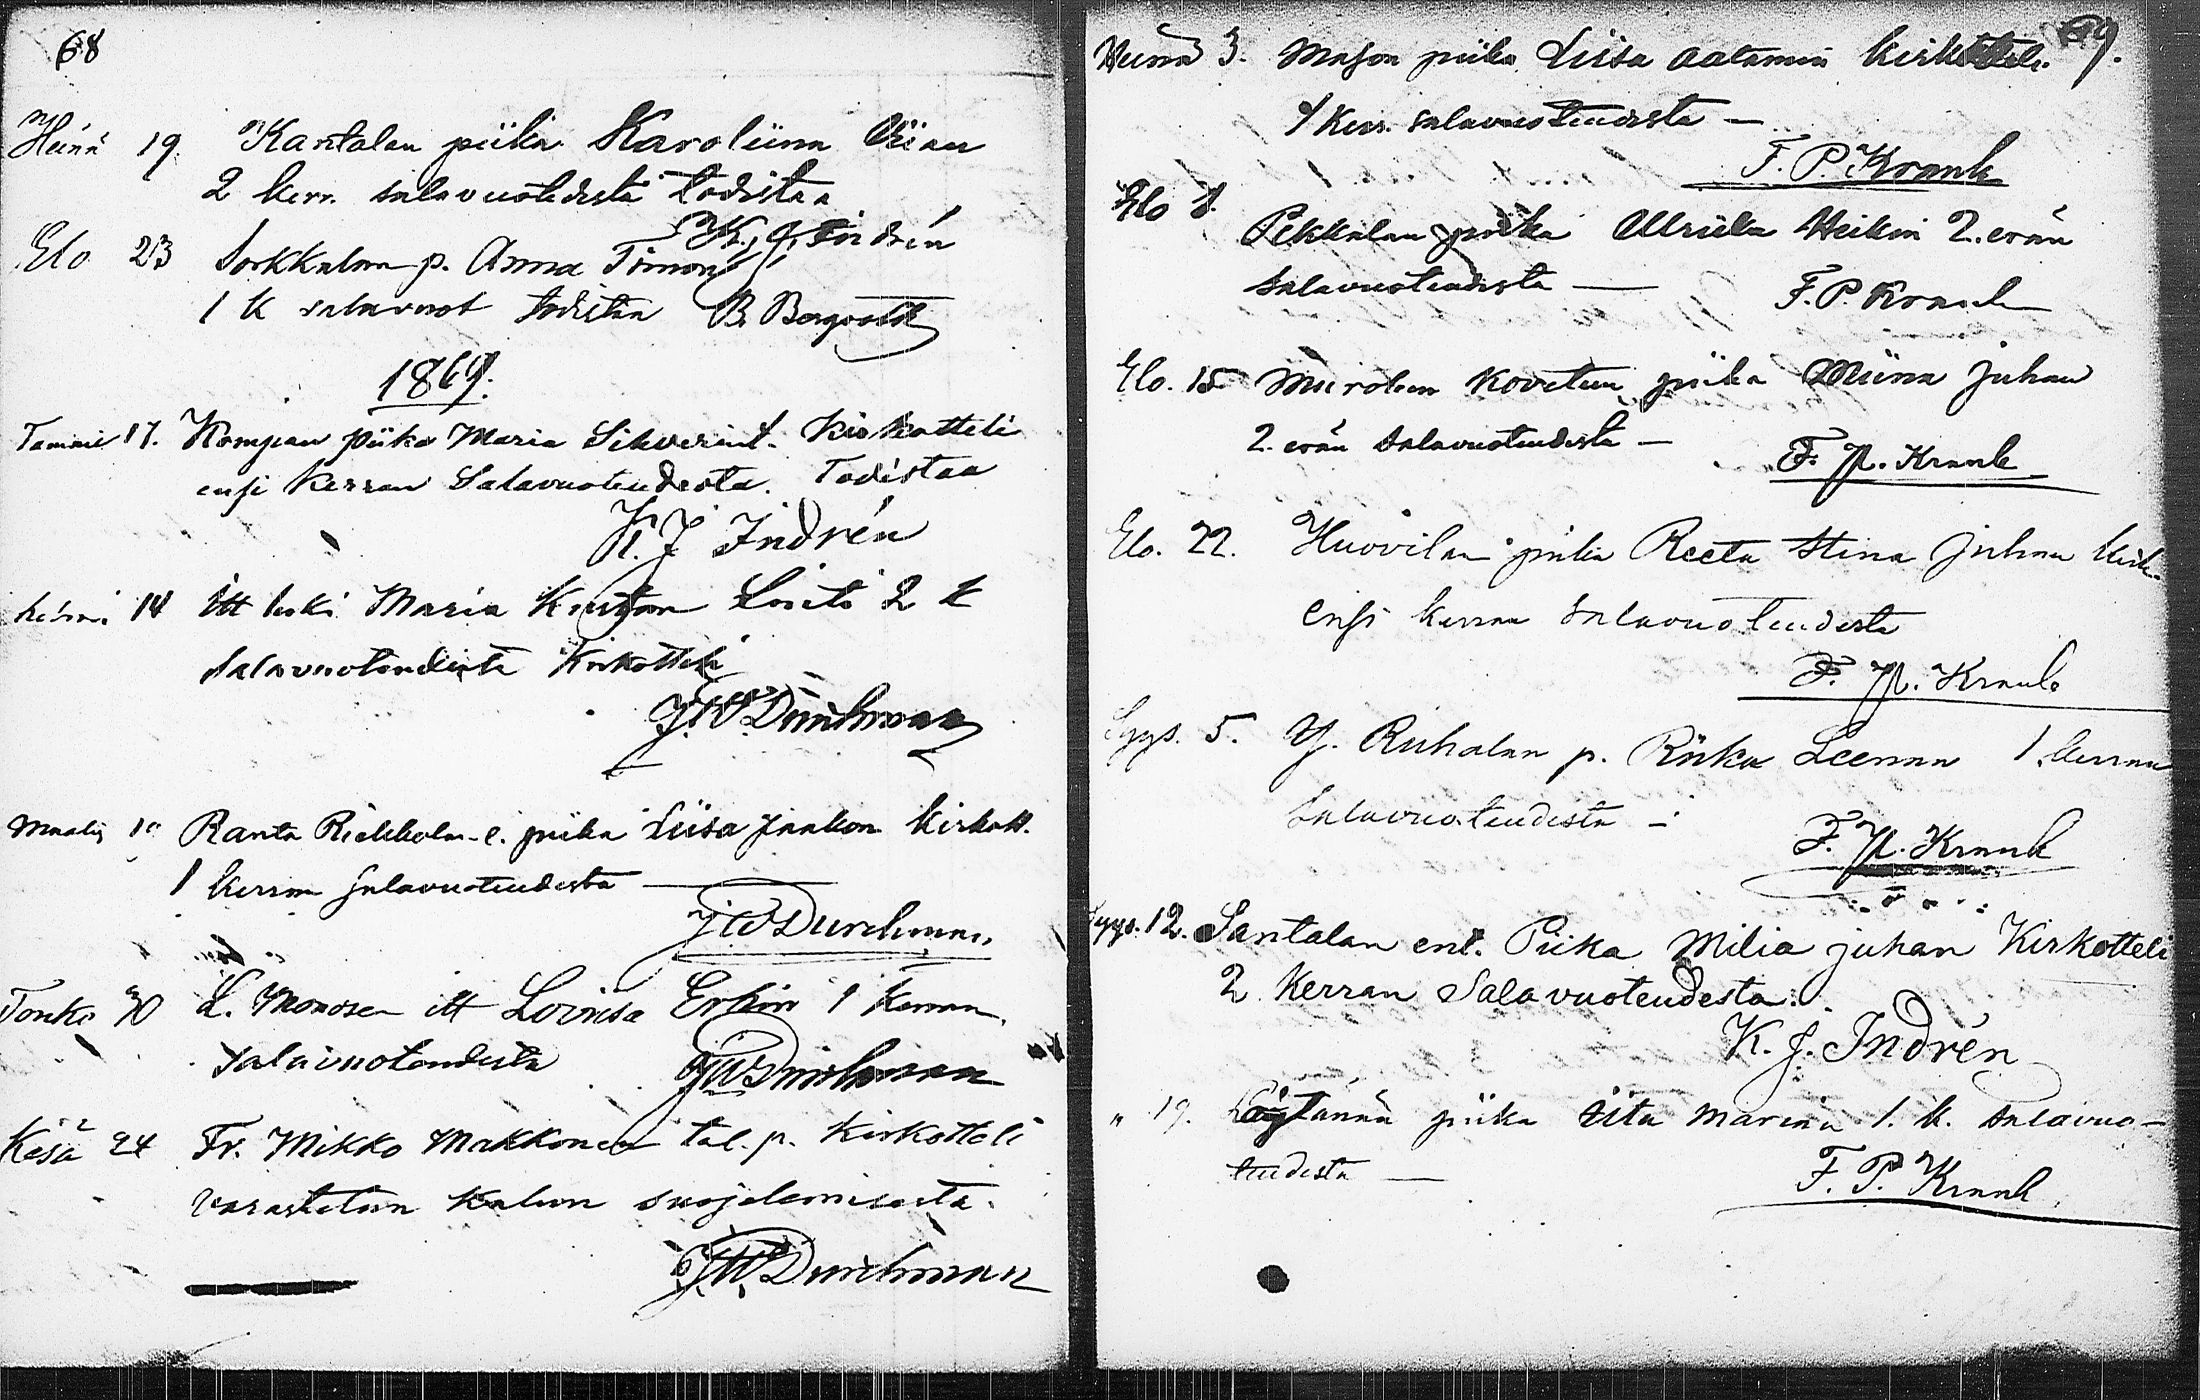 68
Heinä 19. Kantalan piika Karoliina
2 kerr. salavuotedesta todistaa
K. J. Indrén
Elo 23 p. Anna Simon
1 k salavuot todistaa B. Bergroth
1869.
Tammi 17. Kompian piika Maria Silverint. Kirkotteli
ensi kerran Salavuoteudesta. Todistaa
K. J. Indrén
Helmi 14 itt leski Maria 2 k
salavuoteudesta Kirkotteli
J. W. Durchman
Maalis Ranta piika Liisa Jaakon Kirkott.
1 kerran salavuoteudesta —
J W Durchman
Touko 30 L. Monosen itt Lovisa Erkin 1 kerran
salavuoteudesta J W Durchman
Kesä 24 Tr. Mikko Makkonen tal. p. Kirkotteli
varastetun kalun suojelemisesta.
J. W. Durchman
69.
Heinä 3. piika Liisa Aatamin
kerr. salavuoteudesta —
F. P. Krank
Elo 1. Pekkalan piika Ulriika Heikin 2. erän
salavuoteudesta — F. P. Krank
Elo. 15 Murolan piika Miina Juhan
2. erän salavuoteudesta —
F. P. Krank
Elo. 22. Huovilan piika Reeta Stina Juhan kirk.
ensi kerran salavuoteudesta
F. P. Krank
Syys. 5. Y. Riihalan p. Riika Leenan 1. kerran
salavuoteudesta —
F. P. Krank
Syys. 12. Santalan ent. Piika Milia Juhan Kirkotteli
2 Kerran Salavuoteudesta.
K. J. Indrén
" 19. piika Iita Maria 1. k. salavuo-
teudesta —
F. P. Krank